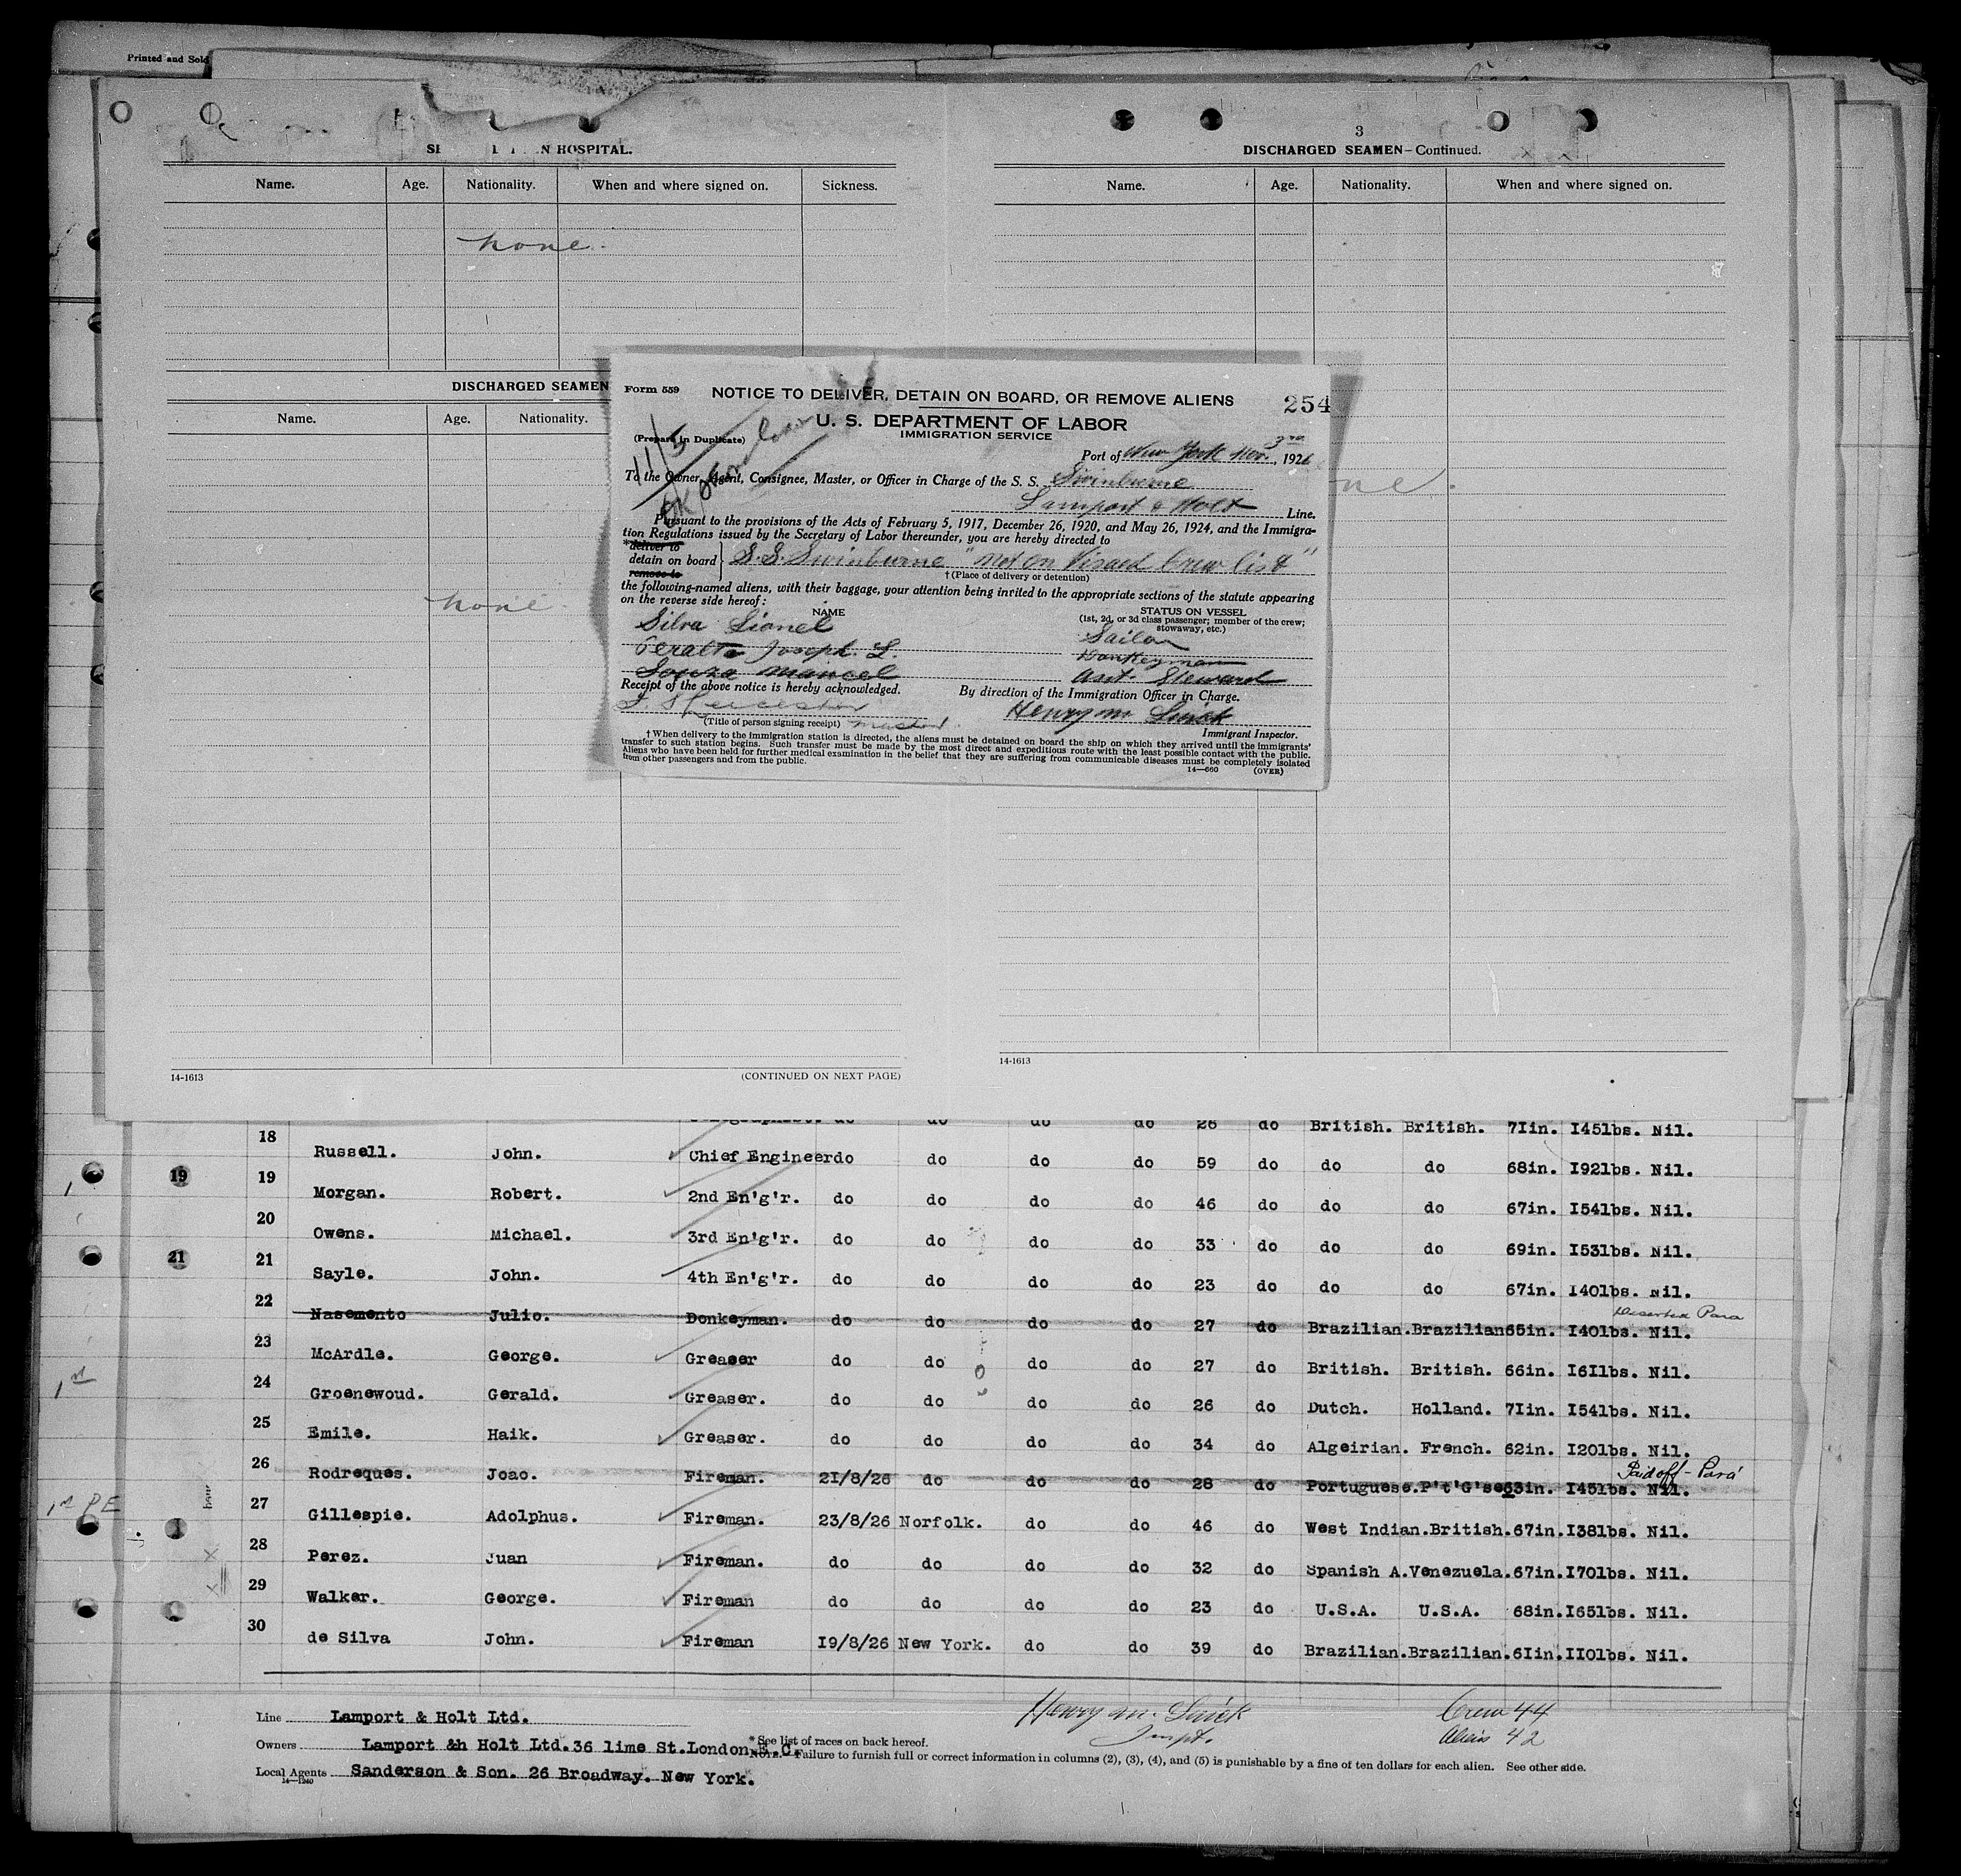 Printed and Sold
N HOSPITAL.
Name. Age. Nationality. When and where signed on. Sickness.
none.
DISCHARGED SEAMEN
Name. Age. Nationality.
none.
14-1613 (CONTINUED ON NEXT PAGE)
3
DISCHARGED SEAMEN—Continued.
Name. Age. Nationality. When and where signed on.
14-1613
Form 559
NOTICE TO DELIVER, DETAIN ON BOARD, OR REMOVE ALIENS
254
U. S. DEPARTMENT OF LABOR
IMMIGRATION SERVICE
(Prepare in Duplicate)
11/5
Port of New York Nov. 3rd, 1926
To the Owner, Agent, Consignee, Master, or Officer in Charge of the S. S. Swinburne
Lamport & Holt Line.
Pursuant to the provisions of the Acts of February 5, 1917, December 26, 1920, and May 26, 1924, and the Immigra-
tion Regulations issued by the Secretary of Labor thereunder, you are hereby directed to
*deliver to
detain on board } S.S. Swinburne "not on Visaed Crew list"
remove to
† (Place of delivery or detention)
the following-named aliens, with their baggage, your attention being invited to the appropriate sections of the statute appearing
on the reverse side hereof:
NAME STATUS ON VESSEL
(1st, 2d, or 3d class passenger; member of the crew;
stowaway, etc.)
Silva Lionel Sailor
Peralta Joseph L. Donkeyman
Souza Manoel Asst. Steward
Receipt of the above notice is hereby acknowledged. By direction of the Immigration Officer in Charge.
Henry M Luick
(Title of person signing receipt) master. Immigrant Inspector.
† When delivery to the immigration station is directed, the aliens must be detained on board the ship on which they arrived until the immigrants'
transfer to such station begins. Such transfer must be made by the most direct and expeditious route with the least possible contact with the public.
Aliens who have been held for further medical examination in the belief that they are suffering from communicable diseases must be completely isolated
from other passengers and from the public.
14—660 (OVER)
do do do do 26 do British. British. 7Iin. I45lbs. Nil.
18 Russell. John. Chief Engineer do do do do 59 do do do 68in. I92lbs. Nil.
19 Morgan. Robert. 2nd En'g'r. do do do do 46 do do do 67in. I54lbs. Nil.
20 Owens. Michael. 3rd En'g'r. do do do do 33 do do do 69in. I53lbs. Nil.
21 Sayle. John. 4th En'g'r. do do do do 23 do do do 67in. I40lbs. Nil.
22 Nasemento Julio. Donkeyman. do do do do 27 do Brazilian. Brazilian 65in. I40lbs. Nil. Deserted Para
23 McArdle. George. Greaser do do do do 27 do British. British. 66in. I6Ilbs. Nil.
24 Groenewoud. Gerald. Greaser. do do do do 26 do Dutch. Holland. 7Iin. I54lbs. Nil.
25 Emile. Haik. Greaser. do do do do 34 do Algeirian. French. 62in. I20lbs. Nil.
26 Rodreques. Joao. Fireman. 2I/8/26 do do do 28 do Portuguese. P't'G'se 63in. I45lbs. Nil. Paid off - Pará
27 Gillespie. Adolphus. Fireman. 23/8/26 Norfolk. do do 46 do West Indian. British. 67in. I38lbs. Nil.
28 Perez. Juan Fireman. do do do do 32 do Spanish A. Venezuela. 67in. I70lbs. Nil.
29 Walker. George. Fireman do do do do 23 do U.S.A. U.S.A. 68in. I65lbs. Nil.
30 de Silva John. Fireman I9/8/26 New York. do do 39 do Brazilian. Brazilian. 6Iin. II0lbs. Nil.
19
21
1st
1st PE
Line Lamport & Holt Ltd.
Owners Lamport &h Holt Ltd. 36 lime St. London. E.C.
Local Agents Sanderson & Son. 26 Broadway. New York.
14—1240
Henry M. Luick
Inspt.
Crew 44
Aliens 42
* See list of races on back hereof.
NOTE.—Failure to furnish full or correct information in columns (2), (3), (4), and (5) is punishable by a fine of ten dollars for each alien. See other side.